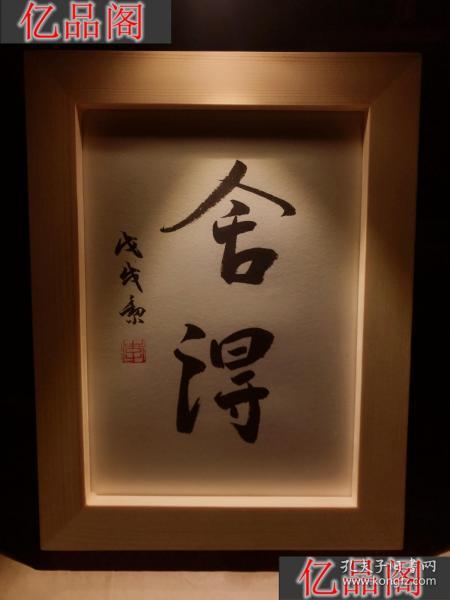 亿品阁
亿品阁
舍得
戊戌
亿品阁
孔夫子旧书网
www.kongfz.com